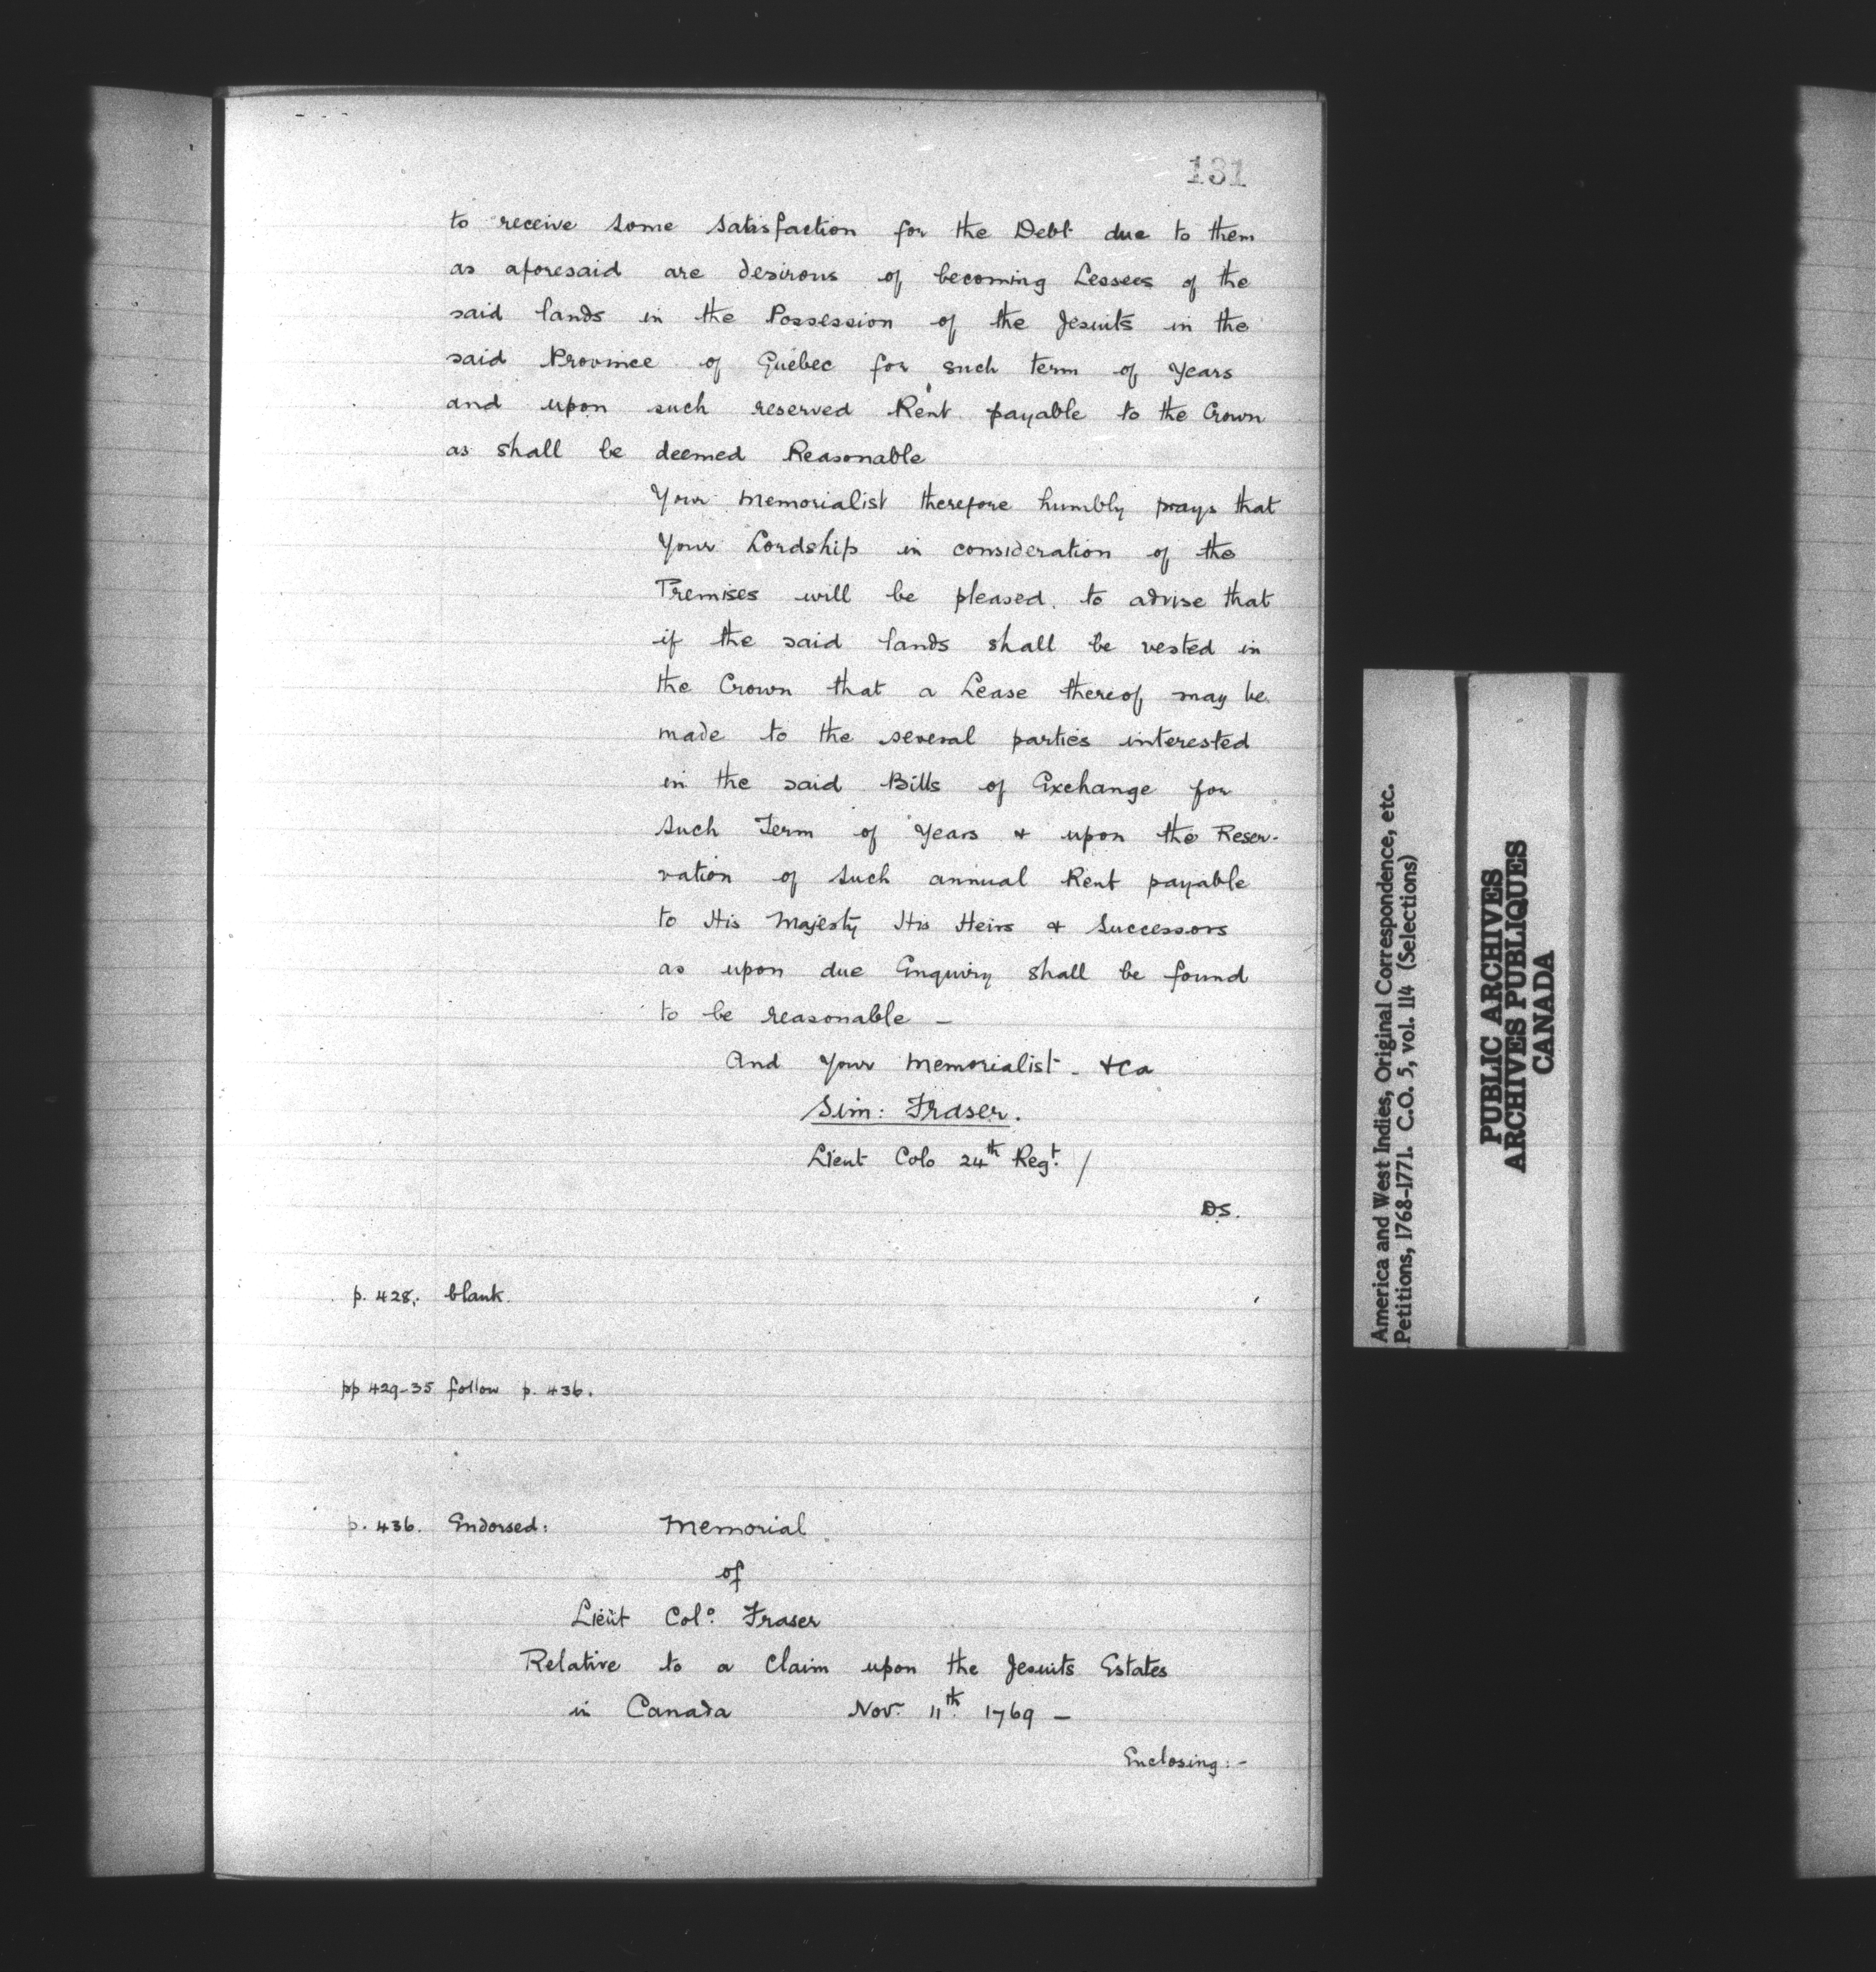 131
to receive some satisfaction for the Debt due to them
as aforesaid are desirous of becoming Lessees of the
said lands in the Possession of the Jesuits in the
said Province of Quebec for such term of Years
and upon such reserved Rent payable to the Crown
as shall be deemed Reasonable
Your Memorialist therefore humbly prays that
Your Lordship in consideration of the
Premises will be pleased to advise that
if the said lands shall be vested in
the Crown that a Lease thereof may be
made to the several parties interested
in the said Bills of Exchange for
such Term of Years & upon the Reser-
vation of such annual Rent payable
to His Majesty His Heirs & Successors
as upon due Enquiry shall be found
to be reasonable —
And Your Memorialist - &ca
Sim: Fraser.
Lieut Colo 24th Regt. /
D.S.
p. 428. blank.
pp 429-35 follow p. 436.
p. 436. Endorsed: Memorial
of
Lieut Colo. Fraser
Relative to a Claim upon the Jesuits Estates
in Canada Nov. 11th. 1769 —
Enclosing:-
America and West Indies, Original Correspondence, etc.
Petitions, 1768-1771. C.O. 5, vol. 114 (Selections)
PUBLIC ARCHIVES
ARCHIVES PUBLIQUES
CANADA